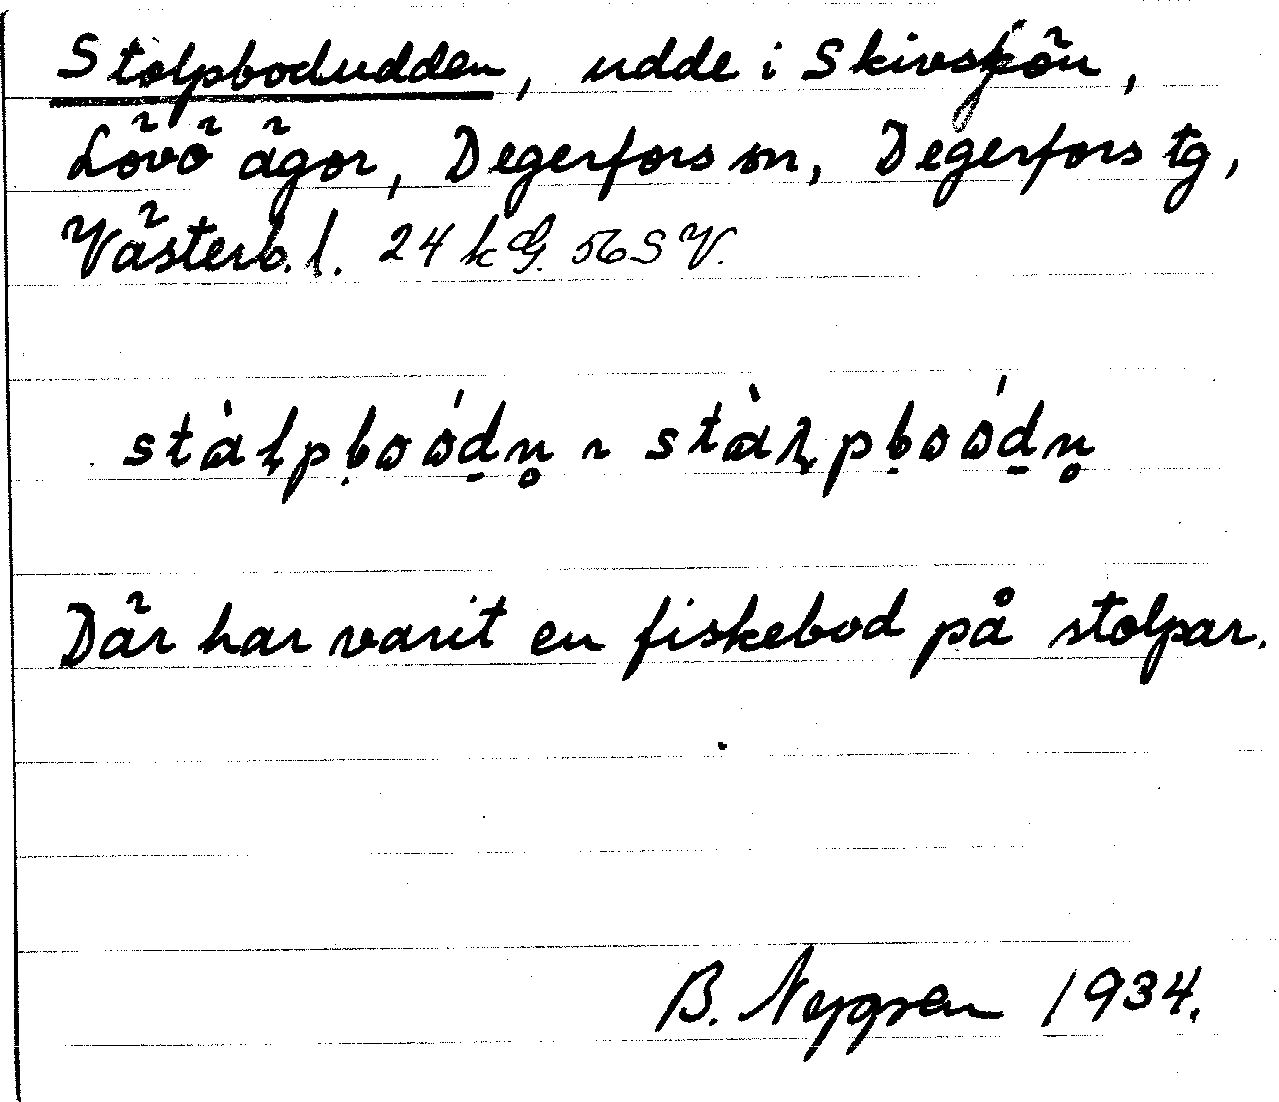 Stolpbodudden, udde i Skivsjön,
Lövö ägor, Degerfors sn, Degerfors tg,
Västerb. l. 24 k G. 56 S V.
stàl̥pḅωώd̲n̥ ~ stàλ̥pḅωώd̲n̥
Där har varit en fiskebod på stolpar.
B. Nygren 1934.